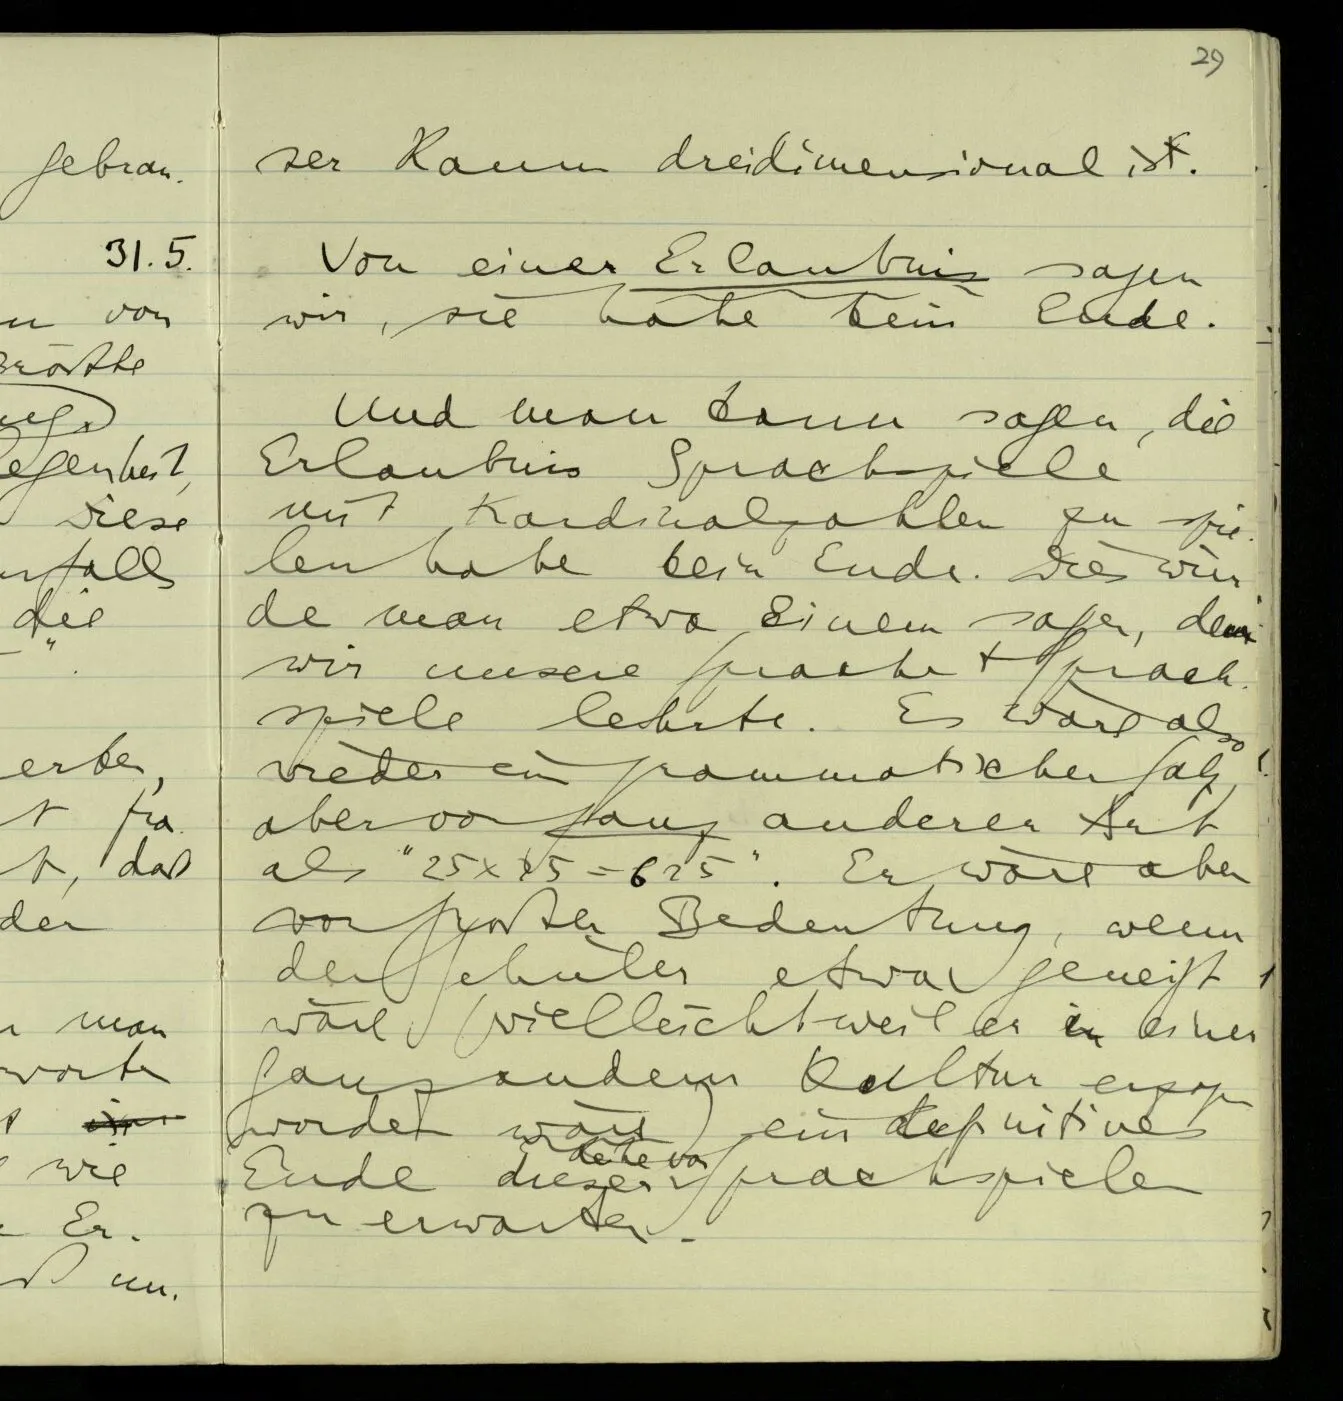 29
gebrau-
31.5.
von
Grösste
egenheit,
diese
nfalls
die
"
erten,
fra-
t, daß
der
man
worten
wie
Er-
un-
ser Raum dreidimensional ist.
Von einer Erlaubnis sagen
wir, sie habe kein Ende.
Und man kann sagen, die
Erlaubnis Sprachspiele
mit Kardinalzahlen zu spie-
len habe kein Ende. Dies wür-
de man etwa Einem sagen, dem
wir unsere Sprache + Sprach-
spiele lehrte. Es wäre also
wieder ein grammatischer Satz,
aber von ganz anderer Art
als "25×25 = 625". Er wäre aber
von großer Bedeutung, wenn
der Schüler etwa geneigt
wäre (vielleicht weil er in einer
ganz andern Kultur erzogen
worden wäre) ein definitives
Ende dieser Sprachspiele
zu erwarten.